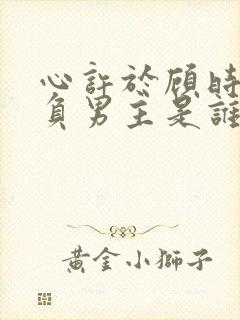 心許於顧時
負男主是誰
黃金小獅子